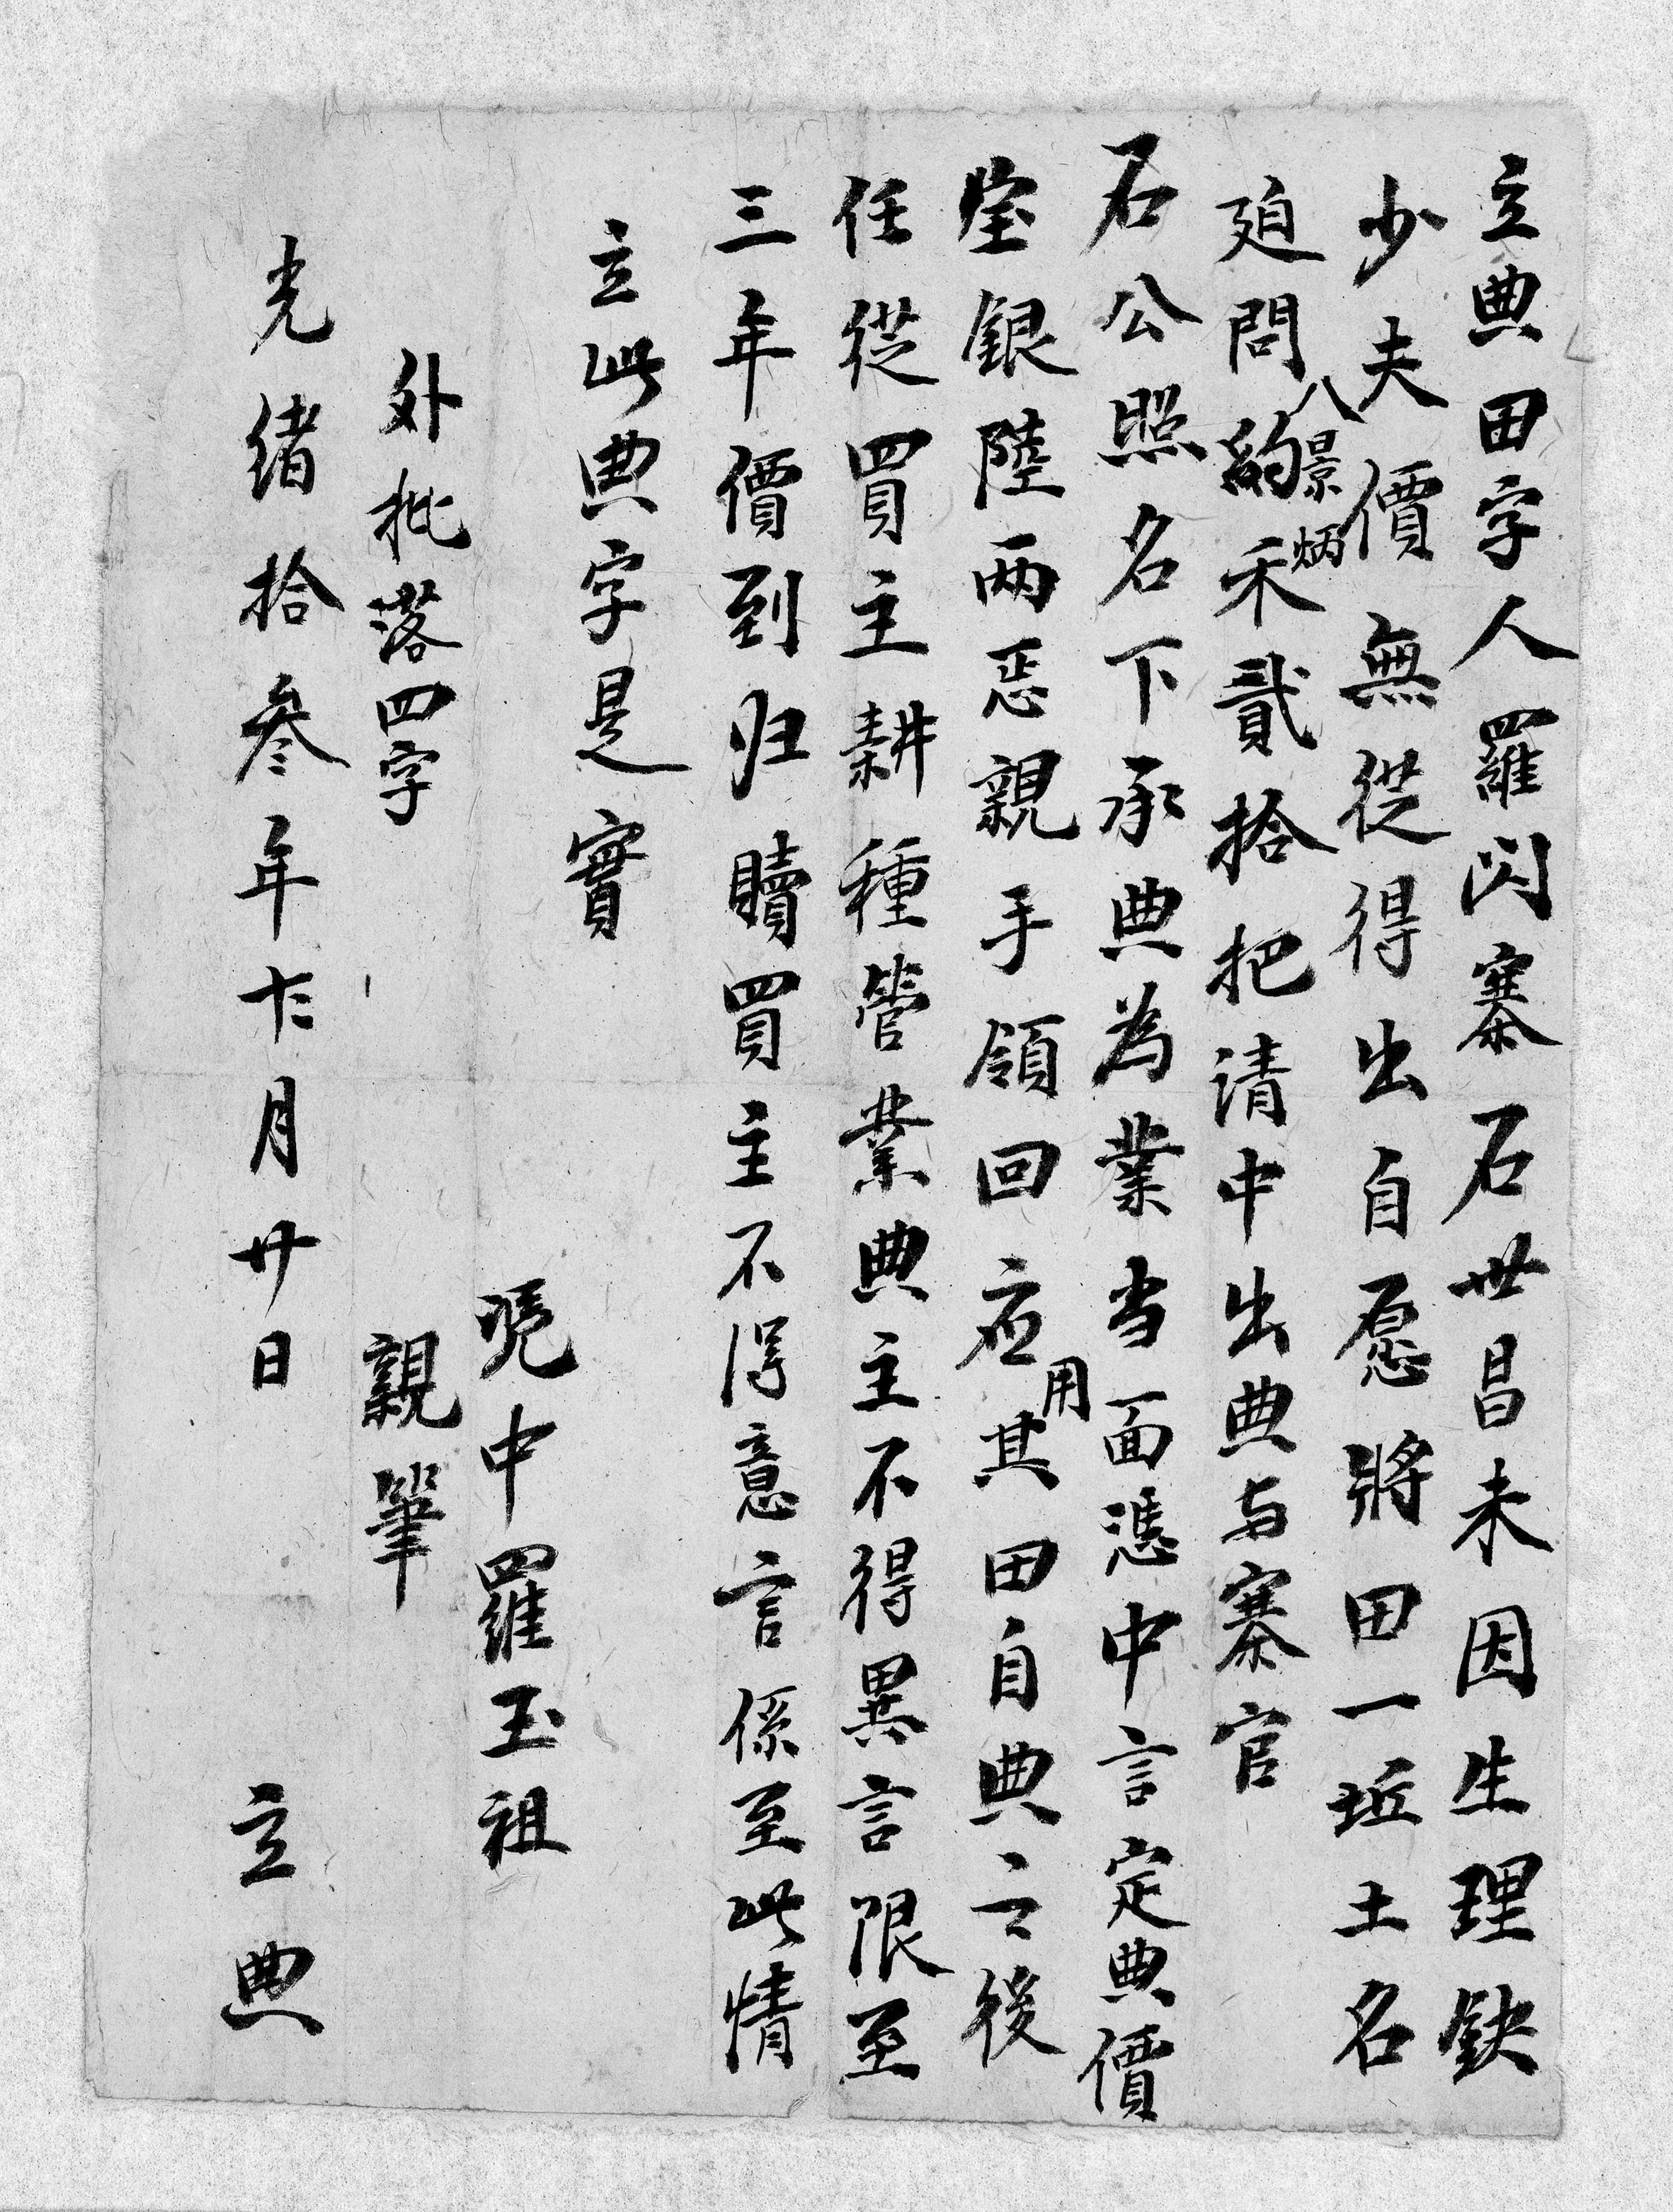 立典田字人羅閃寨石世昌未因生理鈌
少夫價無從得出自愿將田一坵土名
廹問八景炳約禾貳拾把请中出典与寨官
石公照名下承典為業当面憑中言定典價
銀陸两㤙親手領回应用其田自典之後
任從買主耕種管業典主不得異言限至
三年價到归贖買主不得意言係至此情
立此典字是實
凴中羅玉祖
外批落四字
親筆
光緒拾叁年十二月廿日立典